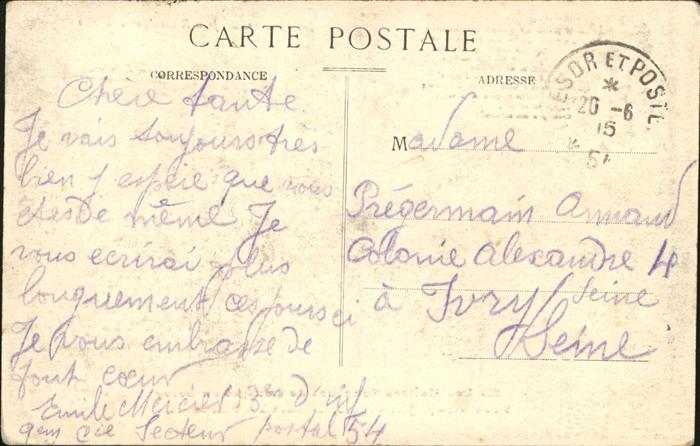 CARTE POSTALE
CORRESPONDANCE
ADRESSE
SOR ET POSTE
20 -6
15
54
Chère tante
Je vais toujours très
bien j espère que vous
êtes de même Je
vous ecrirai plus
longuement ces jours ci
Je vous embrasse de
tout cœur
Emile Mercier 13e
9em cie Secteur postal 54
Madame
Prégermain Armand
Colonie Alexandre 4
à Ivry / Seine
Seine